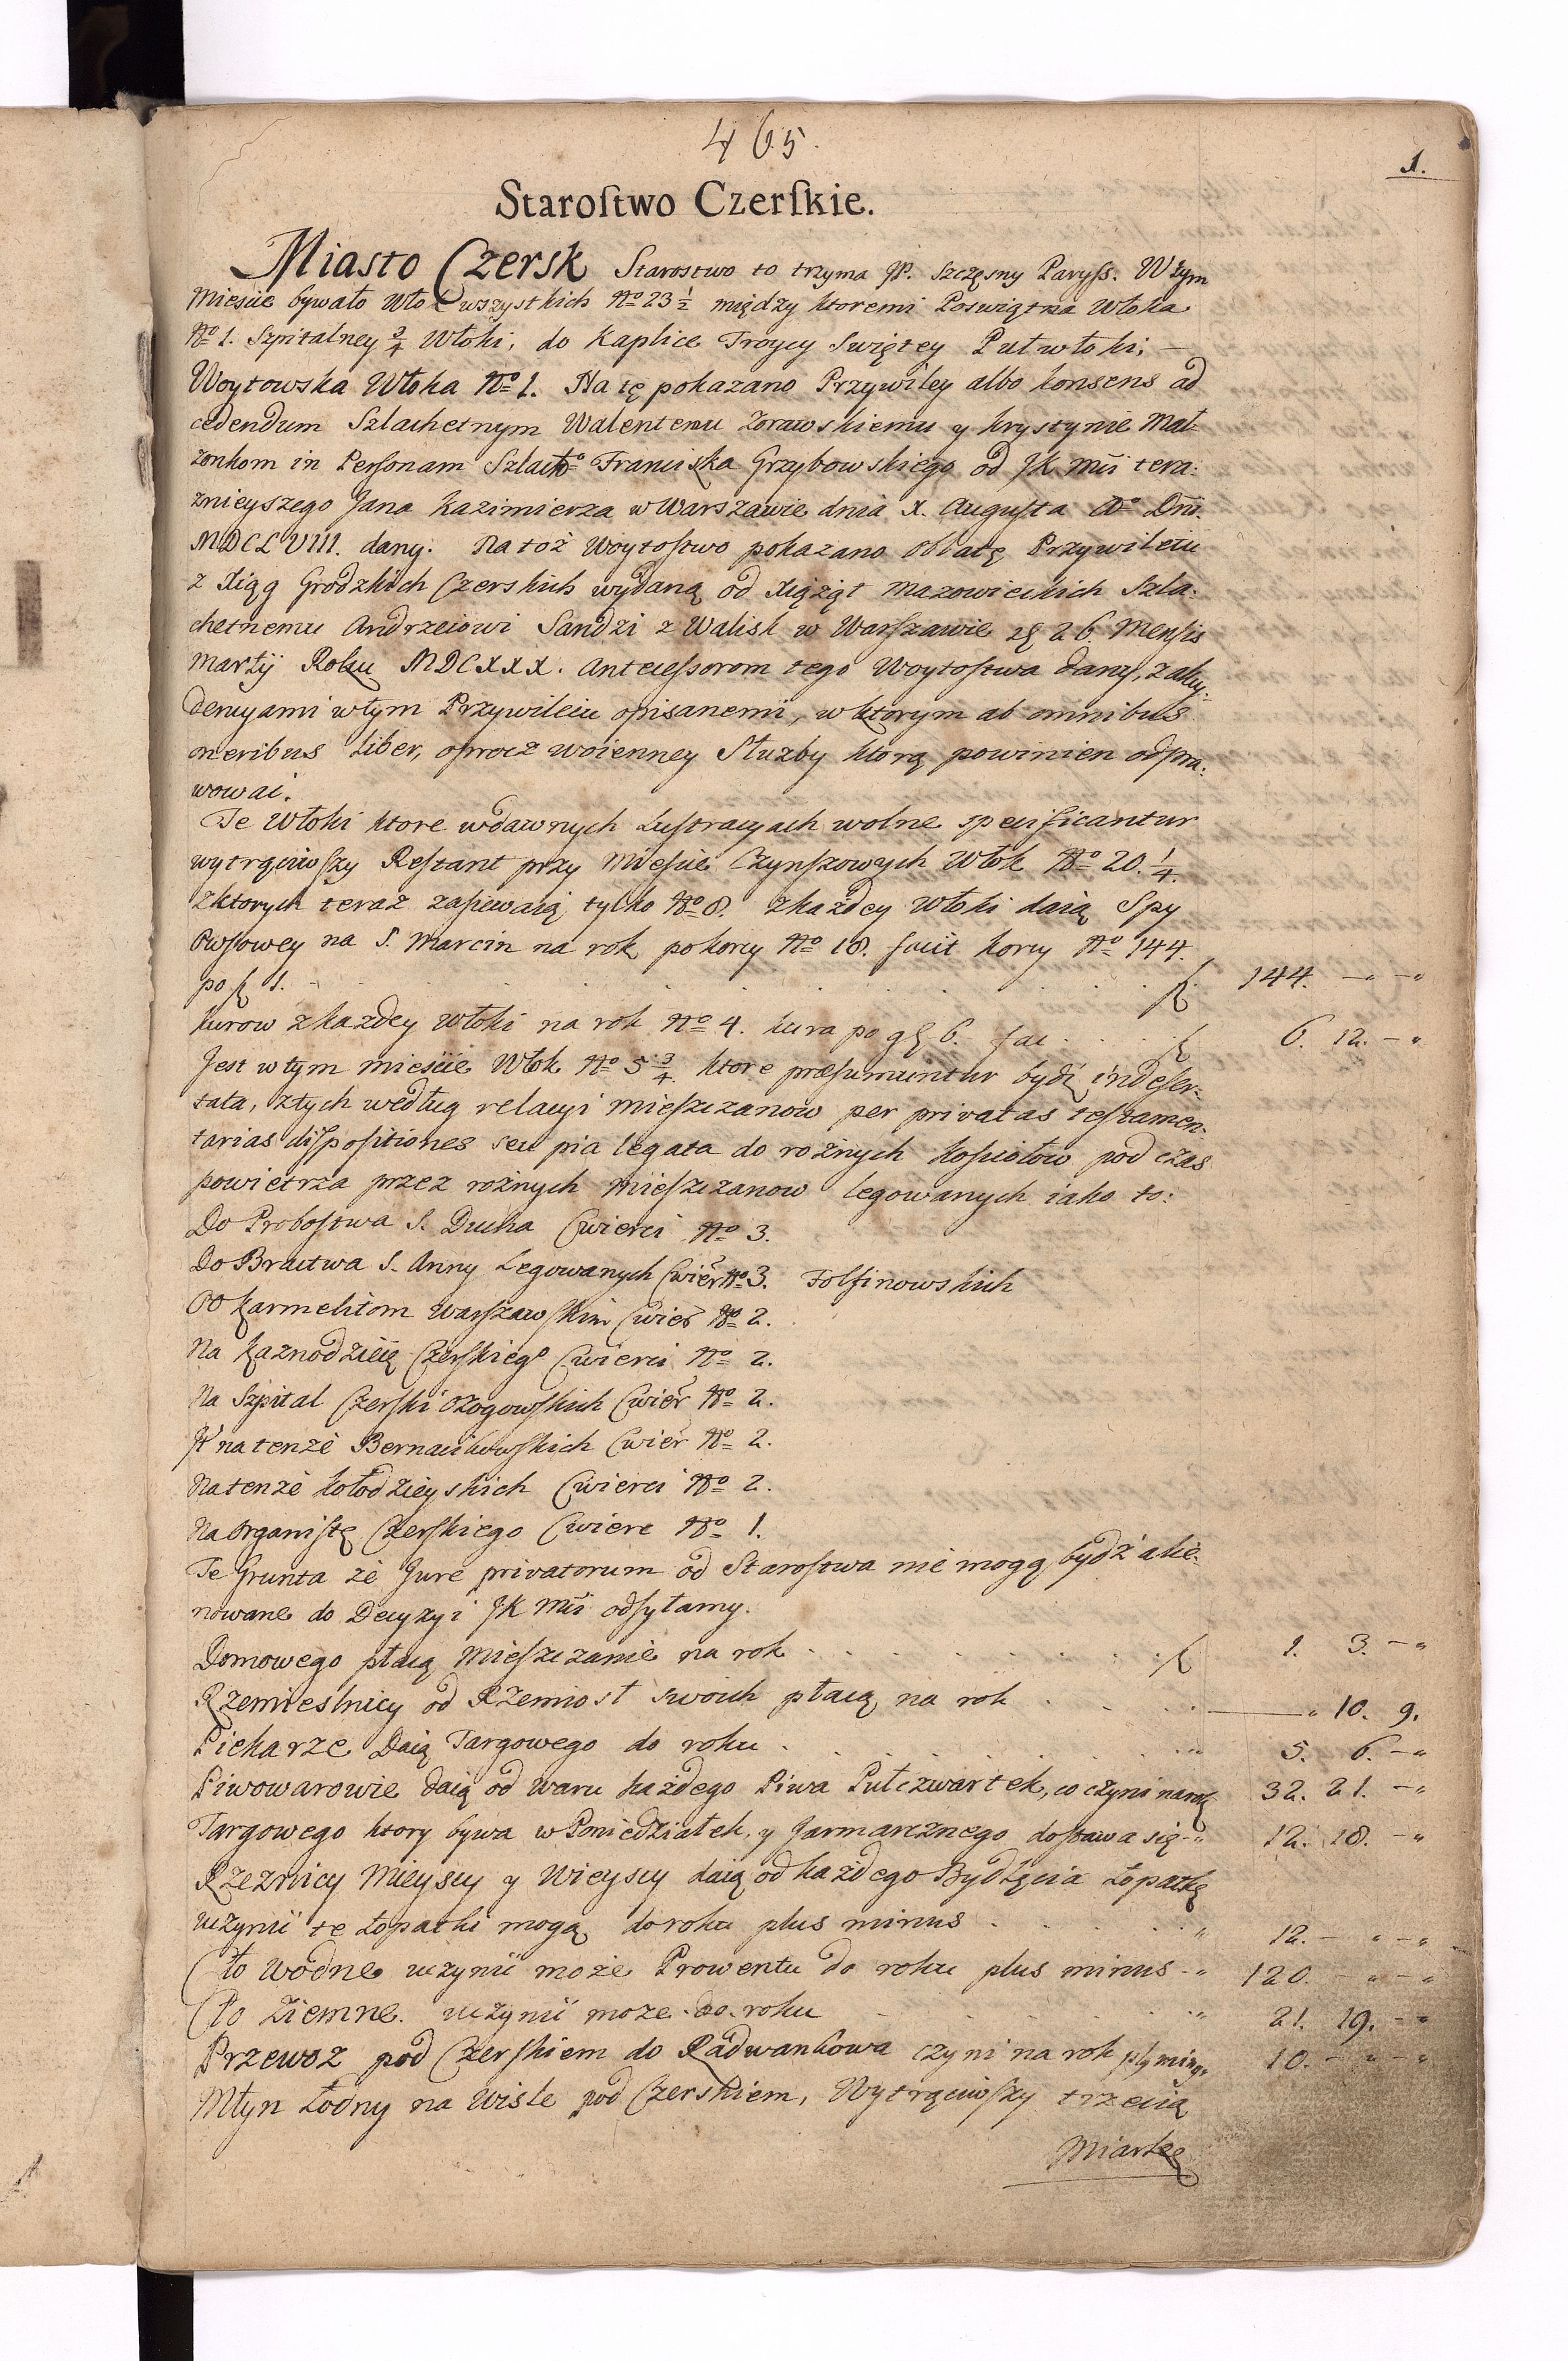 465.
1.
Staroſtwo Czerſkie.
Miasto Czersk Starostwo to trzyma JP. Szczęsny Paryſs. W tym
Mieście bywało Włok wszystkich No 23 1/2 między ktoremi Poswiątna Włoka
No 1. Szpitalney 3/4 Włoki, do Kaplice Troycy Swiętey Puł włoki; —
Woytowska Włoka No 1. Na tę pokazano Przywiley albo konsens ad
cedendum Szlachetnym Walentemu Zorawskiemu y Krystynie Mał-
żonkom in Perſonam Szlachto Franciszka Grzybowskiego od JK Mći tera:
znieyszego Jana Kazimierza w Warszawie dnia X. Auguſta Ao Dni.
MDCLVIII. dany. Na toż Woytoſtwo pokazano Oblatę Przywileiu
z Xiąg Grodzkich Czerskich wydaną od Xiążąt Mazowieckich Szla:
chetnemu Andrzeiowi Sandzi z Walisk w Warſzawie 26. Menſis
Martÿ Roku MDCXXX. Anteceſsorom tego Woytoſtwa dany, z akcy:
dencyami w tym Przywileiu opisanemi, w ktorym ab omnibus
oneribus Liber, oprocz woienney Służby ktorą powinien odpra:
wować.
Te Włoki ktore w dawnych Luſtracyach wolne specificantur
wytrąciwſzy Reſtant przy Mieście Czynſzowych Włok No 20. 1/4.
z ktorych teraz zasiewaią tylko No 8. z każdey Włoki daią Spy
Owſowey na S. Marcin na rok po korcy No 18. facit korcy No 144.
po ƒ 1. . . . . . . . . ƒ 144. — " — "
Kurow z każdey Włoki na rok No 4. kura po gſ 6. fac . . . ƒ 6. 12. — "
Jest w tym mieście Włok No 5 3/4. ktore præſumuntur bydź indeſer-
tata, z tych według relacyi mieſzczanow per privatas teſtamen-
tarias diſpoſitiones seu pia legata do rożnych Kościołow pod czas
powietrza przez rożnych mieſzczanow legowanych iako to:
Do Proboſtwa S. Ducha Cwierci No 3.
Do Bractwa S. Anny Legowanych Cwier No 3. Folſinowskich
OO Karmelitom Warſzawſkim Cwier No 2.
Na Kaznodzieię Czerſkiego Cwierci No 2.
Na Szpital Czerſki Ozogowſkich Cwier No 2.
It na tenże Bernacikowſkich Cwier No 2.
Na tenże Kołodzieyskich Cwierci No 2.
Na Organiſtę Czerſkiego Cwierc No 1.
Te Grunta że Jure privatorum od Staroſtwa nie mogą bydź alie-
nowane do Decyzyi JK Mći odſyłamy.
Domowego płacą Mieſzczanie na rok . . . . . . ƒ 1. 3. — "
Rzemieslnicy od Rzemiosł swoich płacą na rok . . . — " 10. 9.
Piekarze Daią Targowego do roku . . . . . . " 5. 6. — "
Piwowarowie daią od waru każdego Piwa Pułczwartek, co czyni na rok 32. 21. — "
Targowego ktory bywa w Poniedziałek, y Jarmarcznego dostawa się — " 12. 18. — "
Rzeznicy Mieyscy y Wieyscy daią od każdego Bydlęcia Łopatkę
uczynić te Łopatki mogą do roku plus minus . . . . " 12. — " — "
Cło Wodne uczynić może Prowentu do roku plus minus — " 120. — " — "
Cło Ziemne uczynić może do roku — . . . . " 21. 19. — "
Przewoz pod Czerſkiem do Radwankowa czyni na rok 10. — " — "
Młyn Łodny na Wiśle pod Czerskiem, Wytrąciwſzy trzecią
Miarkę